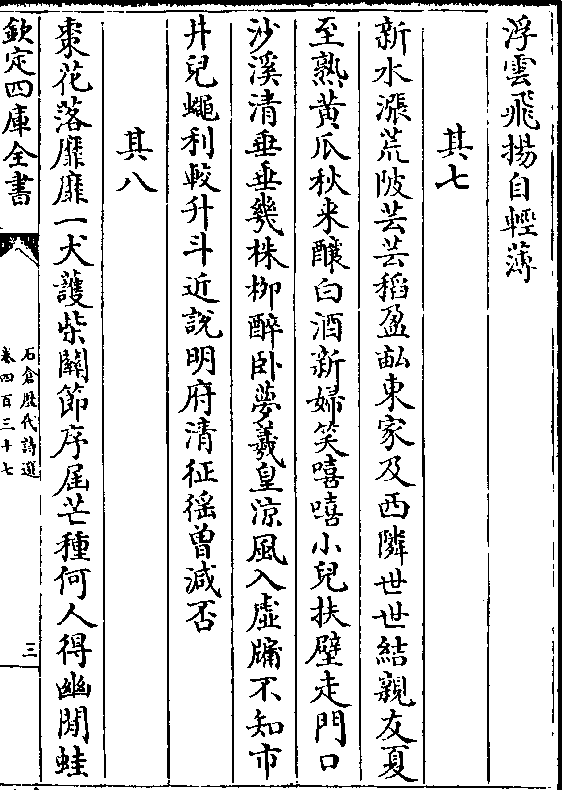 浮雲飛揚自輕薄
其七
新水漲荒陂芸芸稻盈畝東家及西隣世世結親友夏
至熟黃瓜秋来釀白酒新婦笑嘻嘻小兒扶壁走門口
沙溪清垂垂幾株柳醉卧夢羲皇涼風入虛牖不知市
井兒蠅利較升斗近說明府清征徭曾減否
其八
棗花落靡靡一犬護柴關節序屆芒種何人得幽閒蛙
欽定四庫全書
石倉歷代詩選
卷四百三十七
三